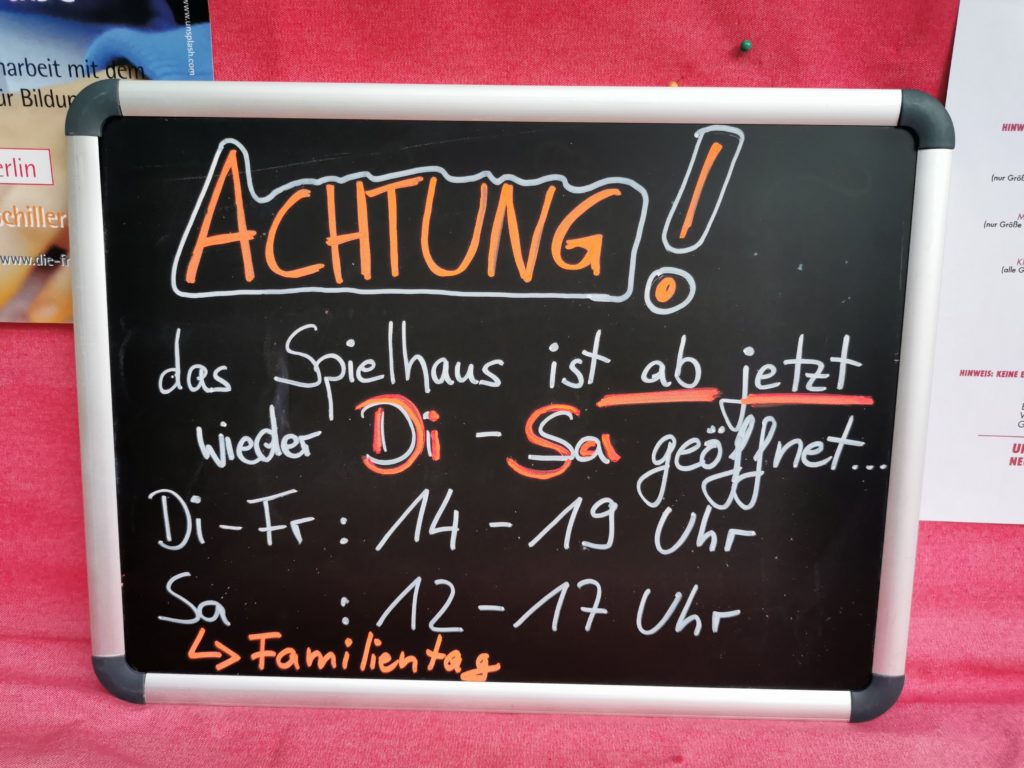 www.unsplash.com
arbeit mit dem
ür Bildun
erlin
schiller
www.die-fr
ACHTUNG!
das Spielhaus ist ab jetzt
wieder Di - Sa geöffnet...
Di - Fr : 14 - 19 Uhr
Sa : 12 - 17 Uhr
↳ Familientag
HINW
(nur Größ
M
(nur Größe
K
(alle G
HINWEIS: KEINE E
U
NE